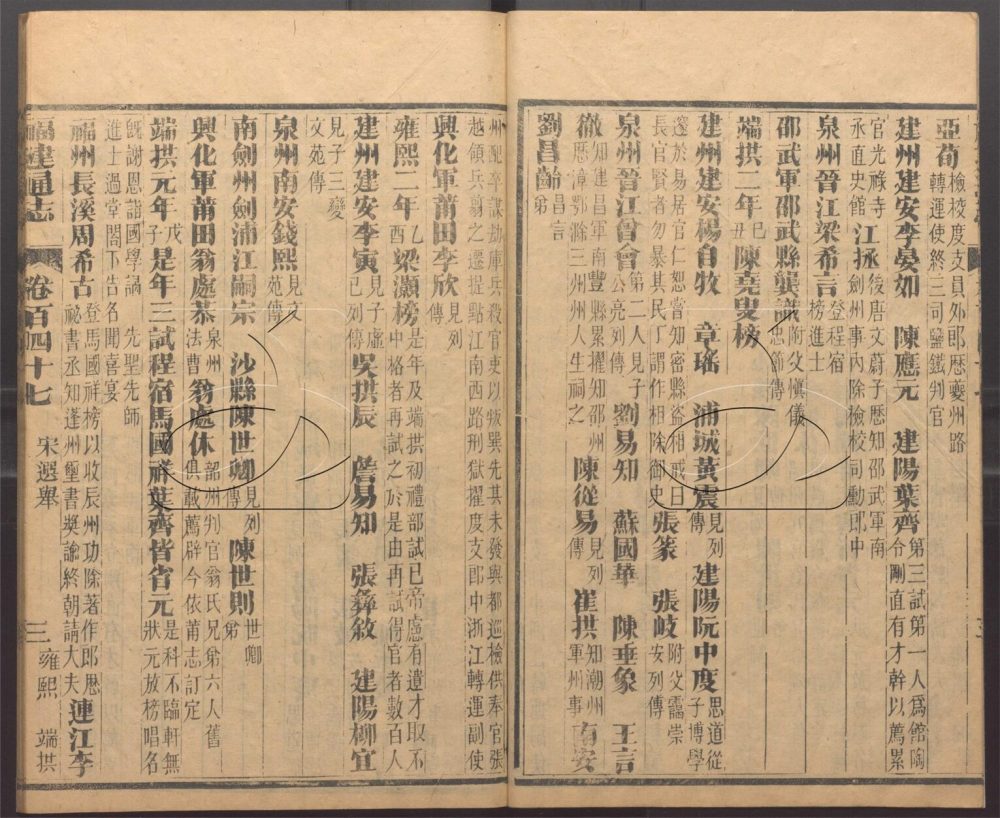 亞荀檢校度支員外郎歷夔州路轉運使終三司鹽鐵判官
建州建安李晏如　陳應元　建陽葉齊第三試第一人爲館陶令剛直有才幹以薦累
官光祿寺丞直史館江拯後唐文蔚子歷知邵武軍南劍州事內除檢校司勳郎中
泉州晉江梁希言登程宿榜進士
邵武軍邵武縣龔識附父愼儀忠節傳
端拱二年己丑陳堯叟榜
建州建安楊自牧　章瑤　浦城黃震見列傳　建陽阮中度思道從子博學
邃於易居官仁恕嘗知密縣盜相戒曰長官賢者勿暴其民丁謂作相除御史張篆　張岐附父靄崇安列傳
泉州晉江曾會第二人見子公亮列傳　劉易知　蘇國華　陳垂象　王言
徹知建昌軍南豐縣累擢知邵州歷漳鄂滁三州州人生祠之　陳從易見列傳　崔拱知潮州軍州事　南安
劉昌齡昌言弟
州卒謀劫庫兵殺官吏以叛巽先其未發與都巡檢供奉官張越領兵翦之遷提點江南西路刑獄擢度支郎中浙江轉運副使
興化軍莆田李欣見列傳
雍熙二年乙酉梁灝榜是年及端拱初禮部試已帝慮有遺才取不中格者再試之於是由再試得官者數百人
建州建安李寅見子虛己列傳　吳拱辰　詹易知　張彝敘　建陽柳宜
見子三變文苑傳
泉州南安錢熙見文苑傳
南劍州劍浦江嗣宗　沙縣陳世卿見列傳　陳世則世卿弟
興化軍莆田翁處恭泉州法曹　翁處休韶州判官翁氏兄弟六人舊俱載薦辟今依莆志訂定
端拱元年戊子是年三試程宿馬國祥葉齊皆省元是科不臨軒無狀元放榜唱名
旣謝恩詣國學謁　先聖先師進士過堂閤下告名聞喜宴
福州長溪周希古登馬國祥榜以收辰州功除著作郎歷祕書丞知達州璽書奬諭終朝請大夫　連江李
福建通志　卷百四十七　宋選舉　三　雍熙　端拱